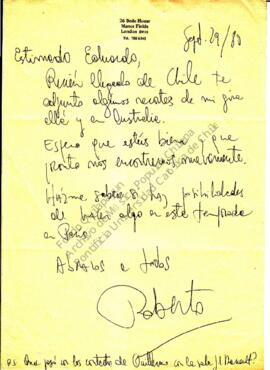 26 Bede House
Manor Fields
London SW15
Sept. 29/80
Estimado Eduardo,
Recién llegado de Chile te
adjunto algunos recortes de mi gira
allá y en Australia.
Espero que estés bien y que
pronto nos encontremos nuevamente.
Hazme saber si hay posibilidades
de hacer algo en esta temporada
en París.
Abrazos a todos
Roberto
P.S. Que pasó con los contactos de Guillermo con la